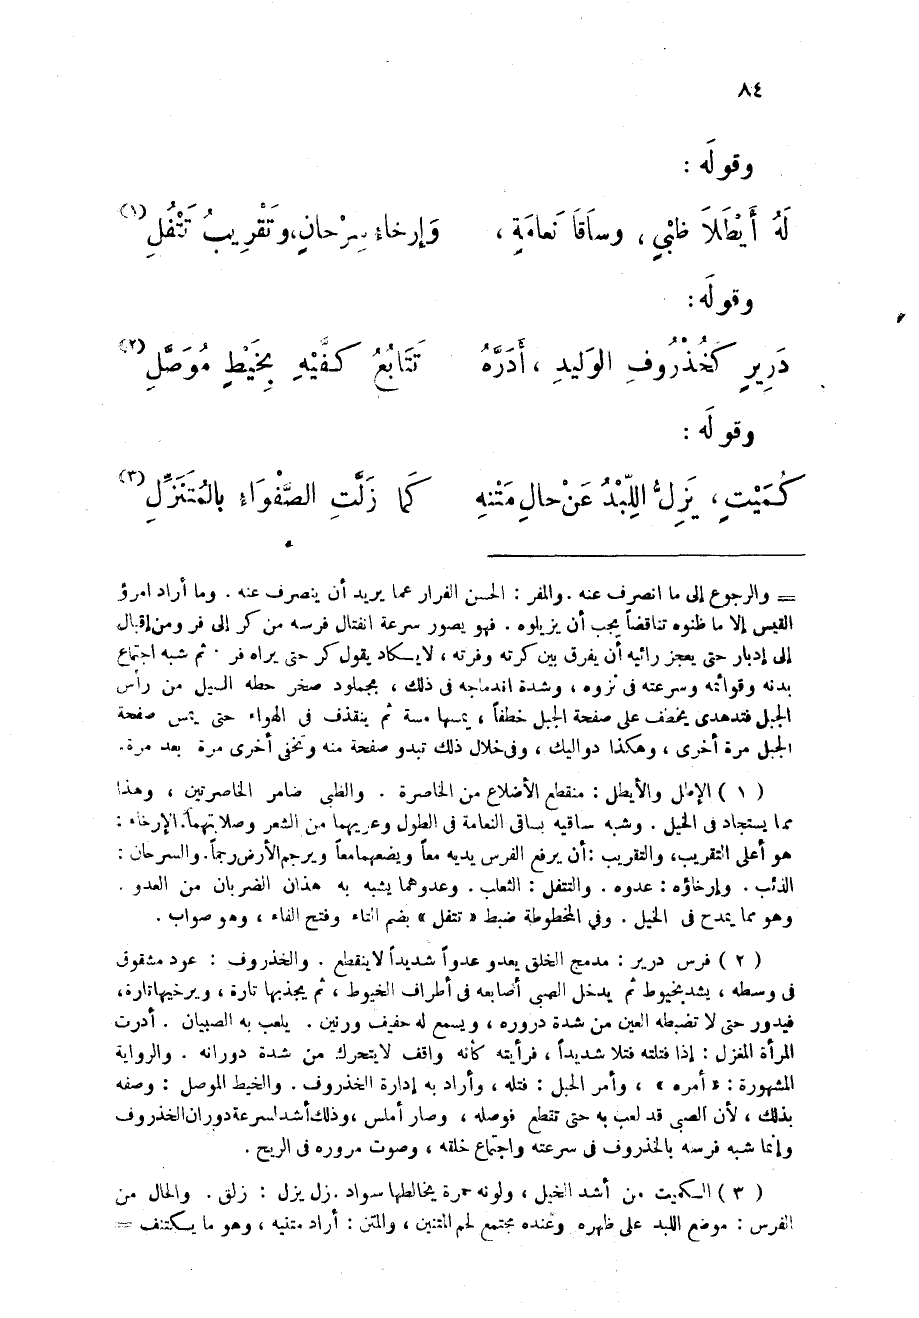 ٨٤
وقولَه :
لَهُ أَيْطَلاَ ظَبْيٍ ، وساَقَا نَعامَةٍ ، وَإرخاءُ سِرْحانٍ، وتَقْرِيبُ تَتْفُلِ (١)
وقولَه :
دَرِيرٍ كَخُذْرُوفِ الوَليدِ ، أَدَرَّهُ تَتَابُعُ كَفَّيْهِ بِخَيْطٍ مُوَصَّلِ (٢)
وقولَه :
كُمَيْتٍ، يَزِلُّ اللِّبْدُ عَنْ حالِ مَتْنِهِ كَمَا زَلَّتِ الصَّفْوَاءُ بالمُتَنَزِّلِ (٣)
= والرجوع إلى ما انصرف عنه . والمفر : الحسن الفرار عما يريد أن ينصرف عنه . وما أراد امرؤ
القيس إلا ما ظنوه تناقضاً يجب أن يزيلوه . فهو يصور سرعة انفتال فرسه من كر إلى فر ومن إقبال
إلى إدبار حتى يعجز رائيه أن يفرق بين كرته وفرته ، لايكاد يقول كر حتى يراه فر . ثم شبه اجتماع
بدنه وقوائمه وسرعته فى نزوه ، وشدة اندماجه فى ذلك ، بجلمود صخر حطه السيل من رأس
الجبل فتدهدى يخطف على صفحة الجبل خطفاً ، يمسها مسة ثم ينقذف فى الهواء حتى يمس صفحة
الجبل مرة أخرى ، وهكذا دواليك ، وفى خلال ذلك تبدو صفحة منه وتخفى أخرى مرة بعد مرة.
( ١ ) الإطل والأيطل : منقطع الأضلاع من الخاصرة . والظبى ضامر الخاصرتين ، وهذا
مما يستجاد فى الخيل . وشبه ساقيه بساقى النعامة فى الطول وعريهما من الشعر وصلابتهما. الإرخاء :
هو أعلى التقريب، والتقريب :أن يرفع الفرس يديه معاً ويضعهما معاً ويرجم الأرض رجماً. والسرحان :
الذئب . وإرخاؤه : عدوه . والتتفل : الثعلب . وعدوهما يشبه به هذان الضربان من العدو .
وهو مما يمدح فى الخيل . وفي المخطوطة ضبط « تتفل » بضم التاء وفتح الفاء ، وهو صواب .
( ٢ ) فرس درير : مدمج الخلق يعدو عدواً شديداً لاينقطع . والخذروف : عود مشقوق
فى وسطه ، يشد بخيوط ثم يدخل الصبى أصابعه فى أطراف الخيوط ، ثم يجذبها تارة ، ويرخيها تارة،
فيدور حتى لا تضبطه العين من شدة دروره ، ويسمع له حفيف ورنين . يلعب به الصبيان . أدرت
المرأة المغزل : إذا فتلته فتلا شديداً ، فرأيته كأنه واقف لايتحرك من شدة دورانه . والرواية
المشهورة : « أمره » ، وأمر الحبل : فتله ، وأراد به إدارة الخذروف . والخيط الموصل : وصفه
بذلك ، لأن الصبى قد لعب به حتى تقطع فوصله ، وصار أملس ، وذلك أشد لسرعة دوران الخذروف
وإنما شبه فرسه بالخذروف فى سرعته واجتماع خلقه ، وصوت مروره فى الريح .
( ٣ ) الكميت من أشد الخيل ، ولونه حمرة يخالطها سواد . زل يزل : زلق . والحال من
الفرس : موضع اللبد على ظهره وعنده مجتمع لحم المتنين ، والمتن : أراد متنيه ، وهو ما يكتنف =